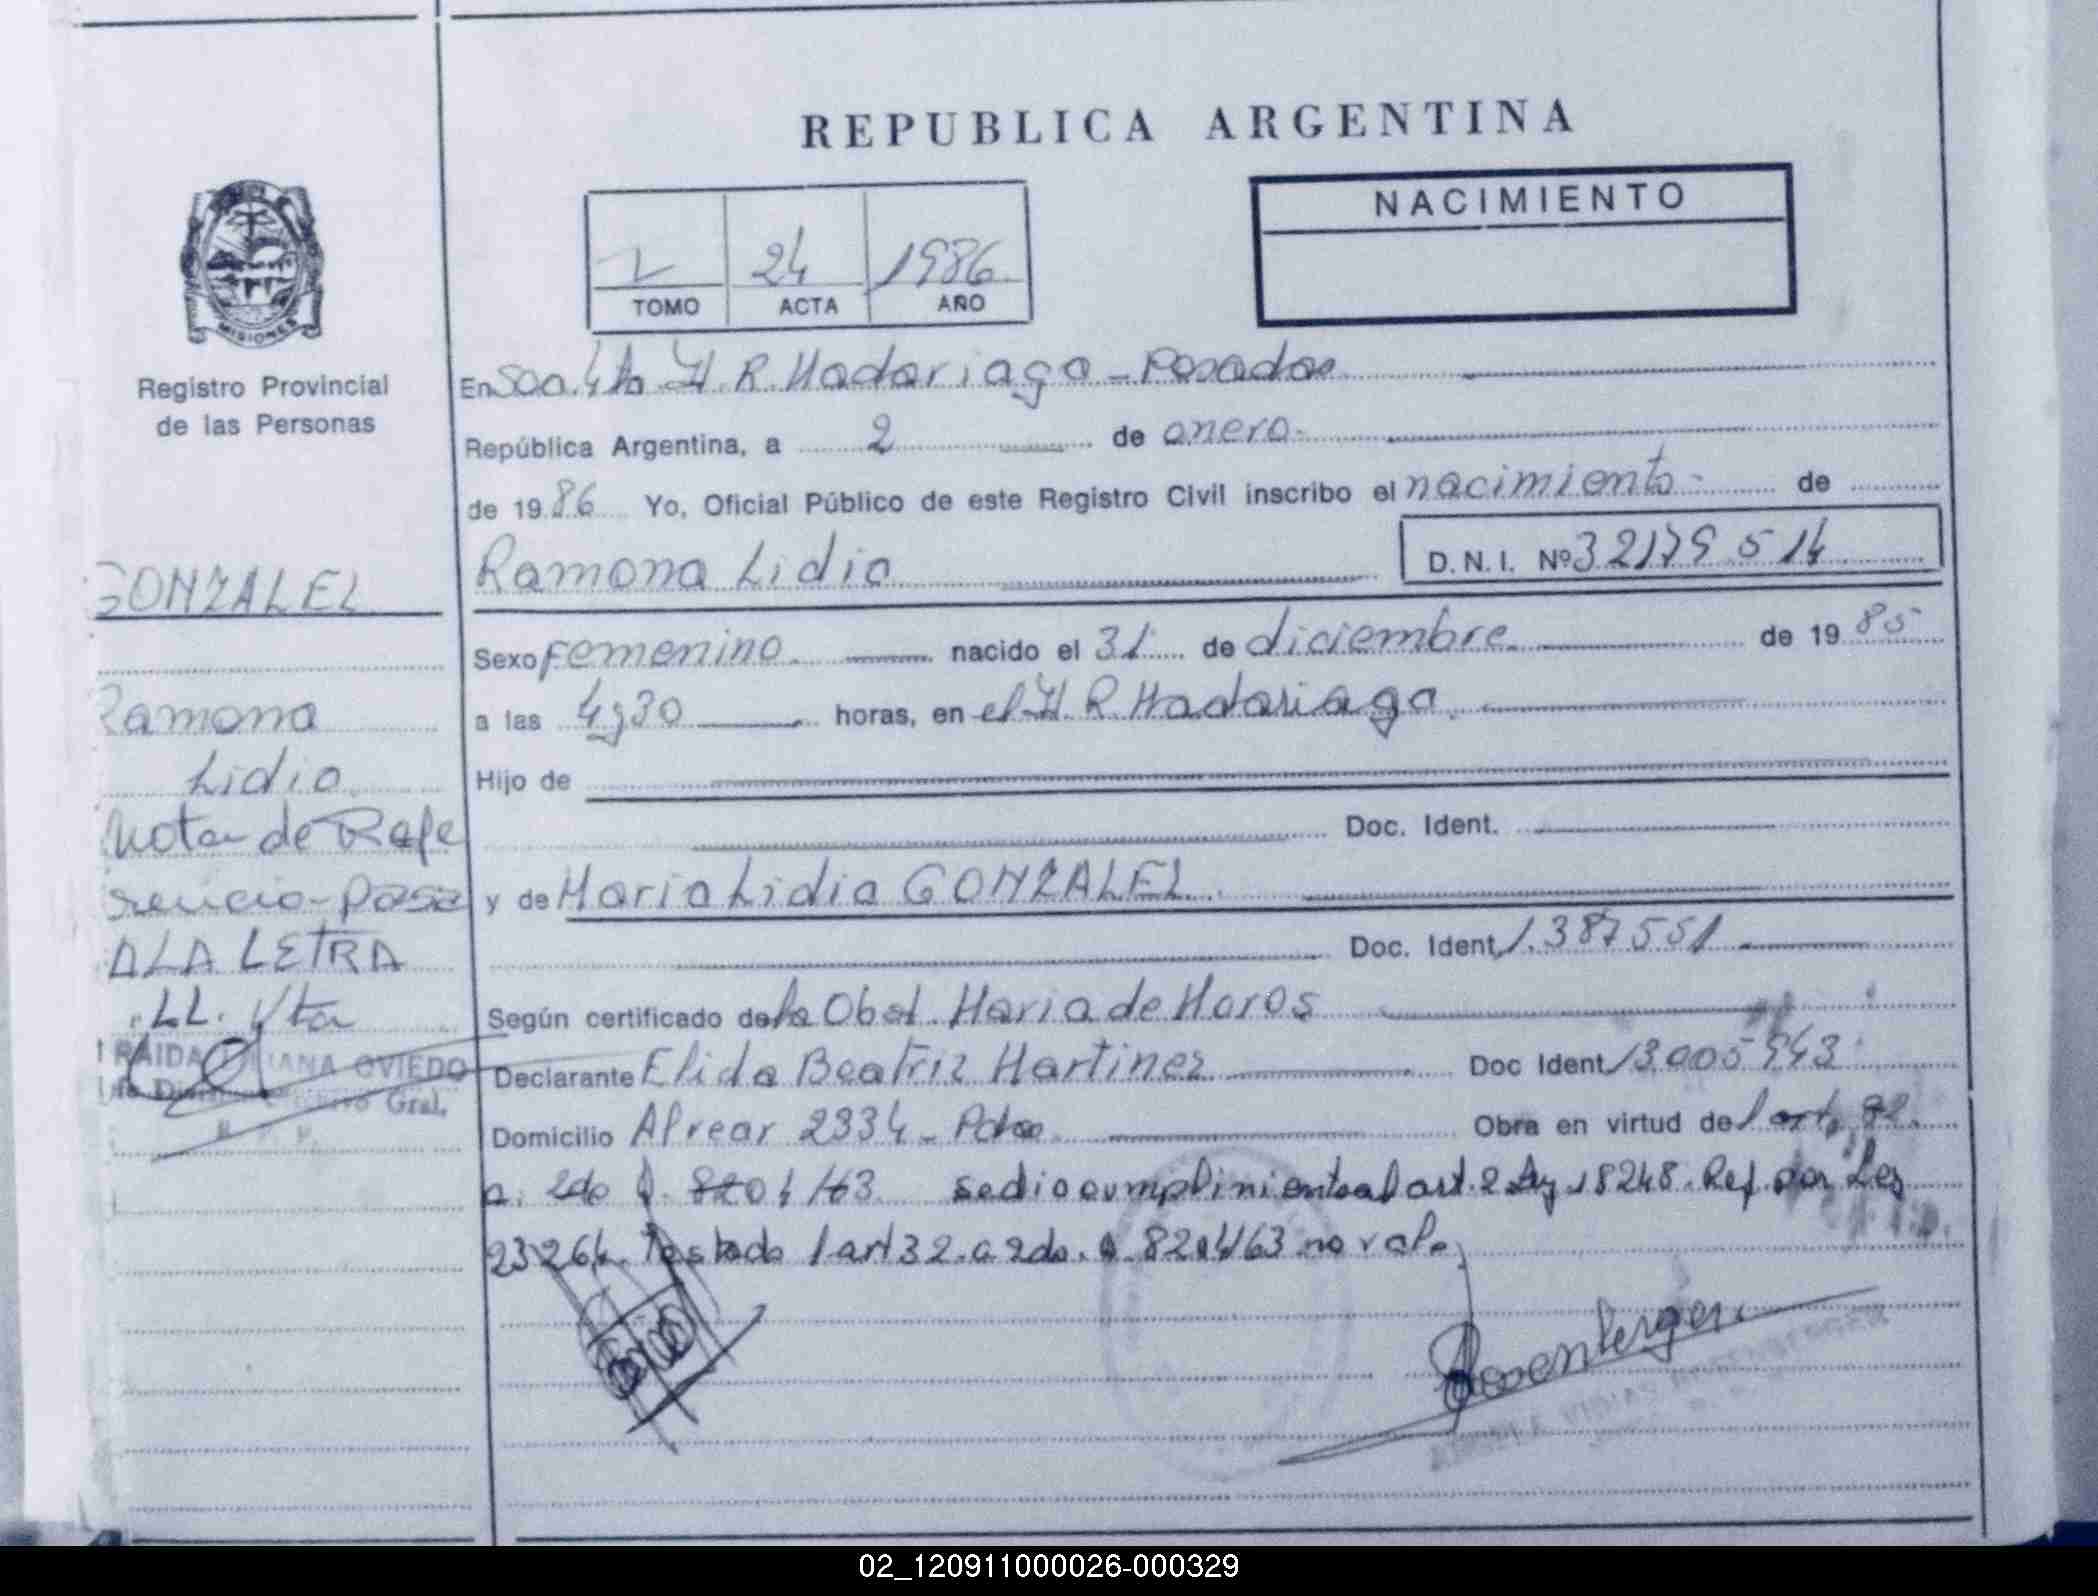 REPUBLICA ARGENTINA
NACIMIENTO
24 1986
TOMO ACTA AÑO
MISIONES
Registro Provincial
de las Personas
En Scc. 4ta. H. R. Madariaga - Posadas
República Argentina, a 2 de enero
de 1986 Yo, Oficial Público de este Registro Civil inscribo el nacimiento de
Ramona Lidia D. N. I. Nº 32179514
Sexo femenino nacido el 31 de diciembre de 1985
a las 4y30 horas, en el H. R. Madariaga
Hijo de
Doc. Ident.
y de Maria Lidia GONZALEZ
Doc. Ident. 1.387551
Según certificado de la Obst. Maria de Haros
Declarante Elida Beatriz Martinez Doc Ident 13005943
Domicilio Alvear 2334 - Pdas Obra en virtud del art. 32
a. 2do D. 8204/63 se dio cumplimiento al art. 2 Ley 18248. Ref. por Ley
23264. Testado l art 32. a 2do. D 8204/63 no vale
Rosenberger
GONZALEZ
Ramona
Lidia
Nota de Refe
rencia - Pasa
A LA LETRA
LL. Vta
OVIEDO
Gral.
02_120911000026-000329